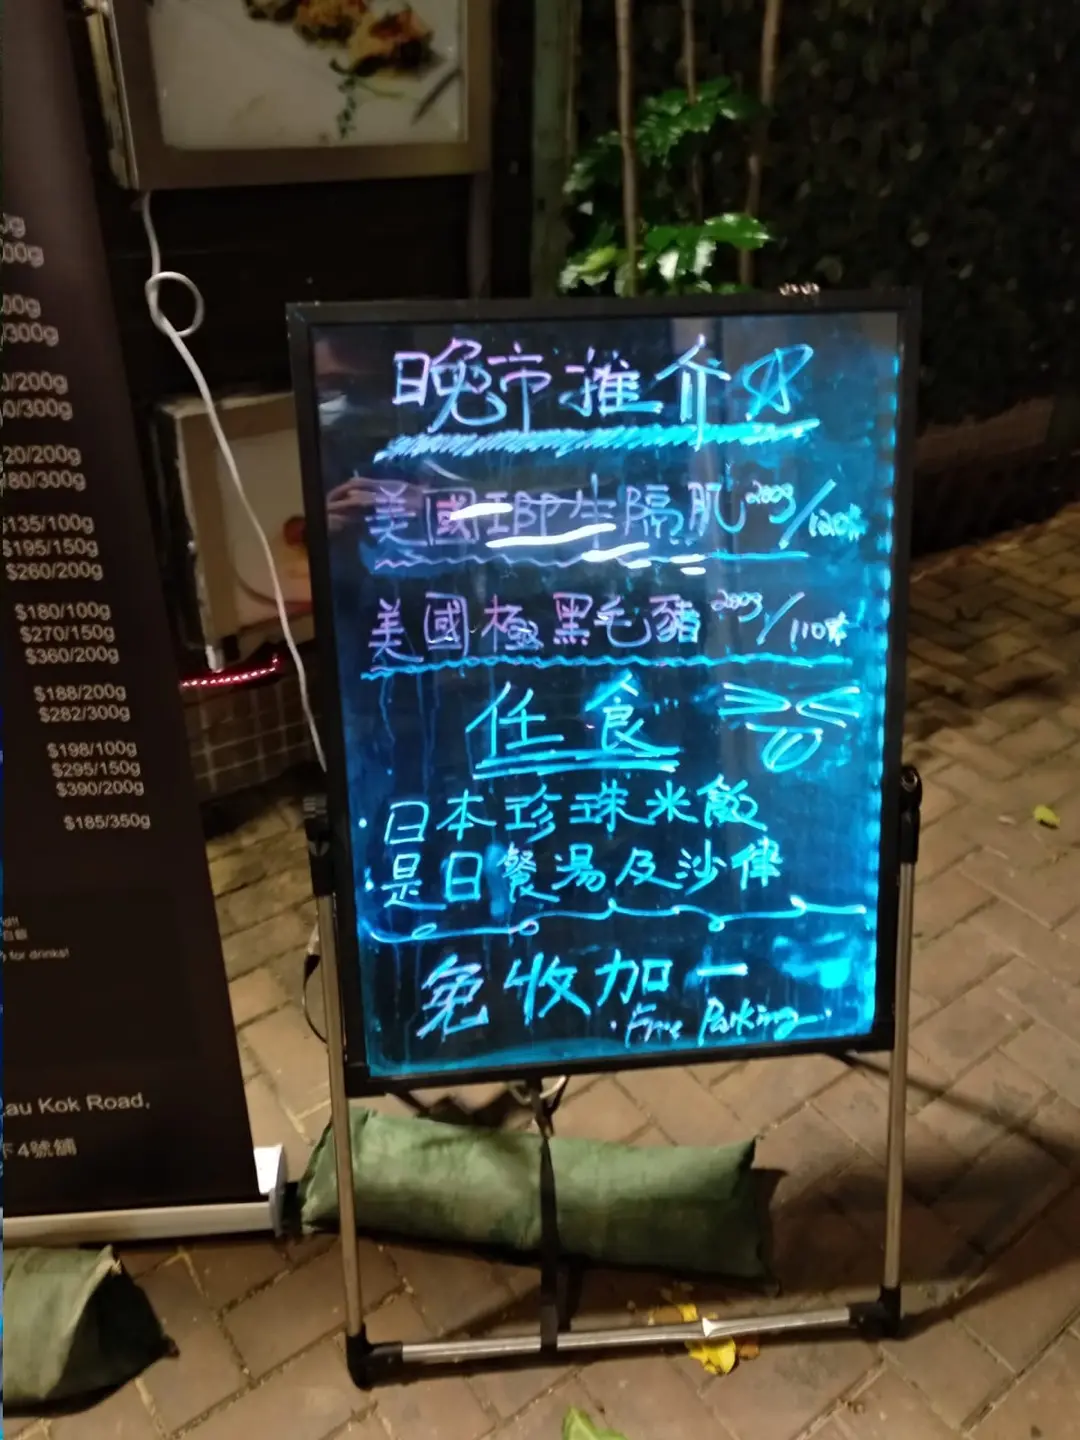 00g
/300g
/200g
0/300g
20/200g
480/300g
$135/100g
$195/150g
$260/200g
$180/100g
$270/150g
$360/200g
$188/200g
$282/300g
$198/100g
$295/150g
$390/200g
$185/350g
for drinks!
au Kok Road,
下4號舖
晚市推介
美國即生隔肌200g/120
美國極黑毛豬200g/110
任食
日本珍珠米飯
是日餐湯及沙律
免收加一
Free Parking